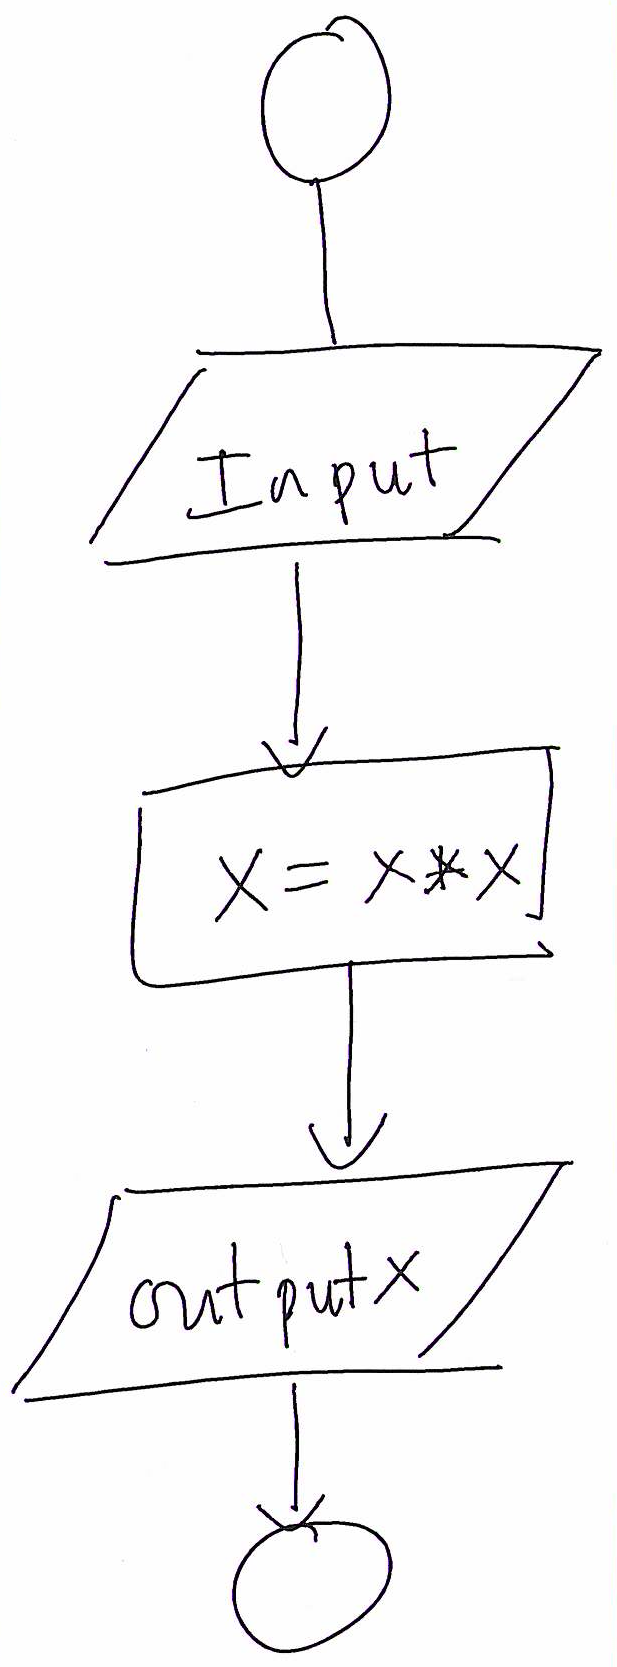 Input
X = X*X
output X